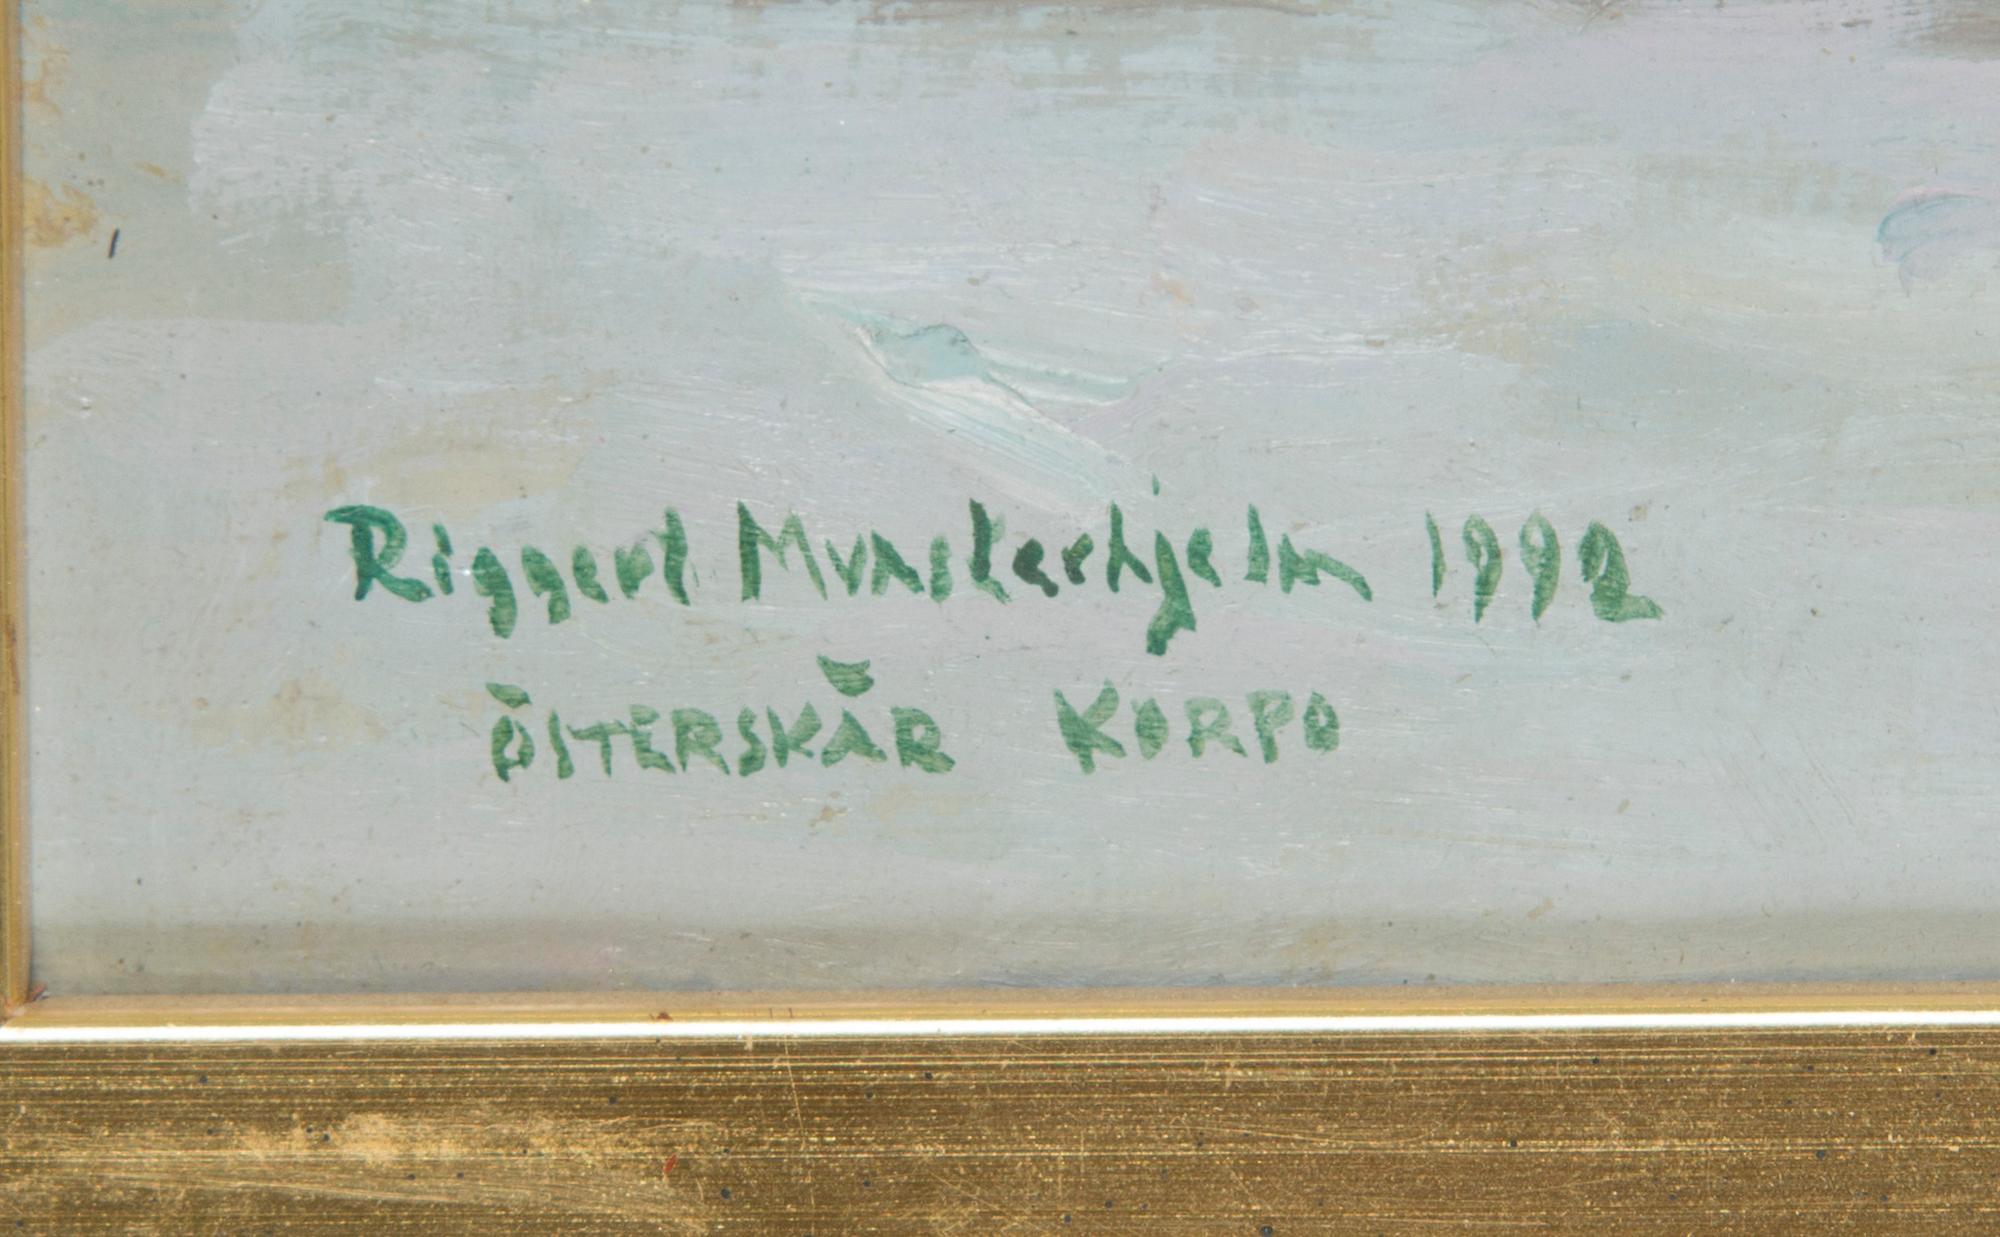 Riggert Munsterhjelm 1992
ÖSTERSKÄR KORPO